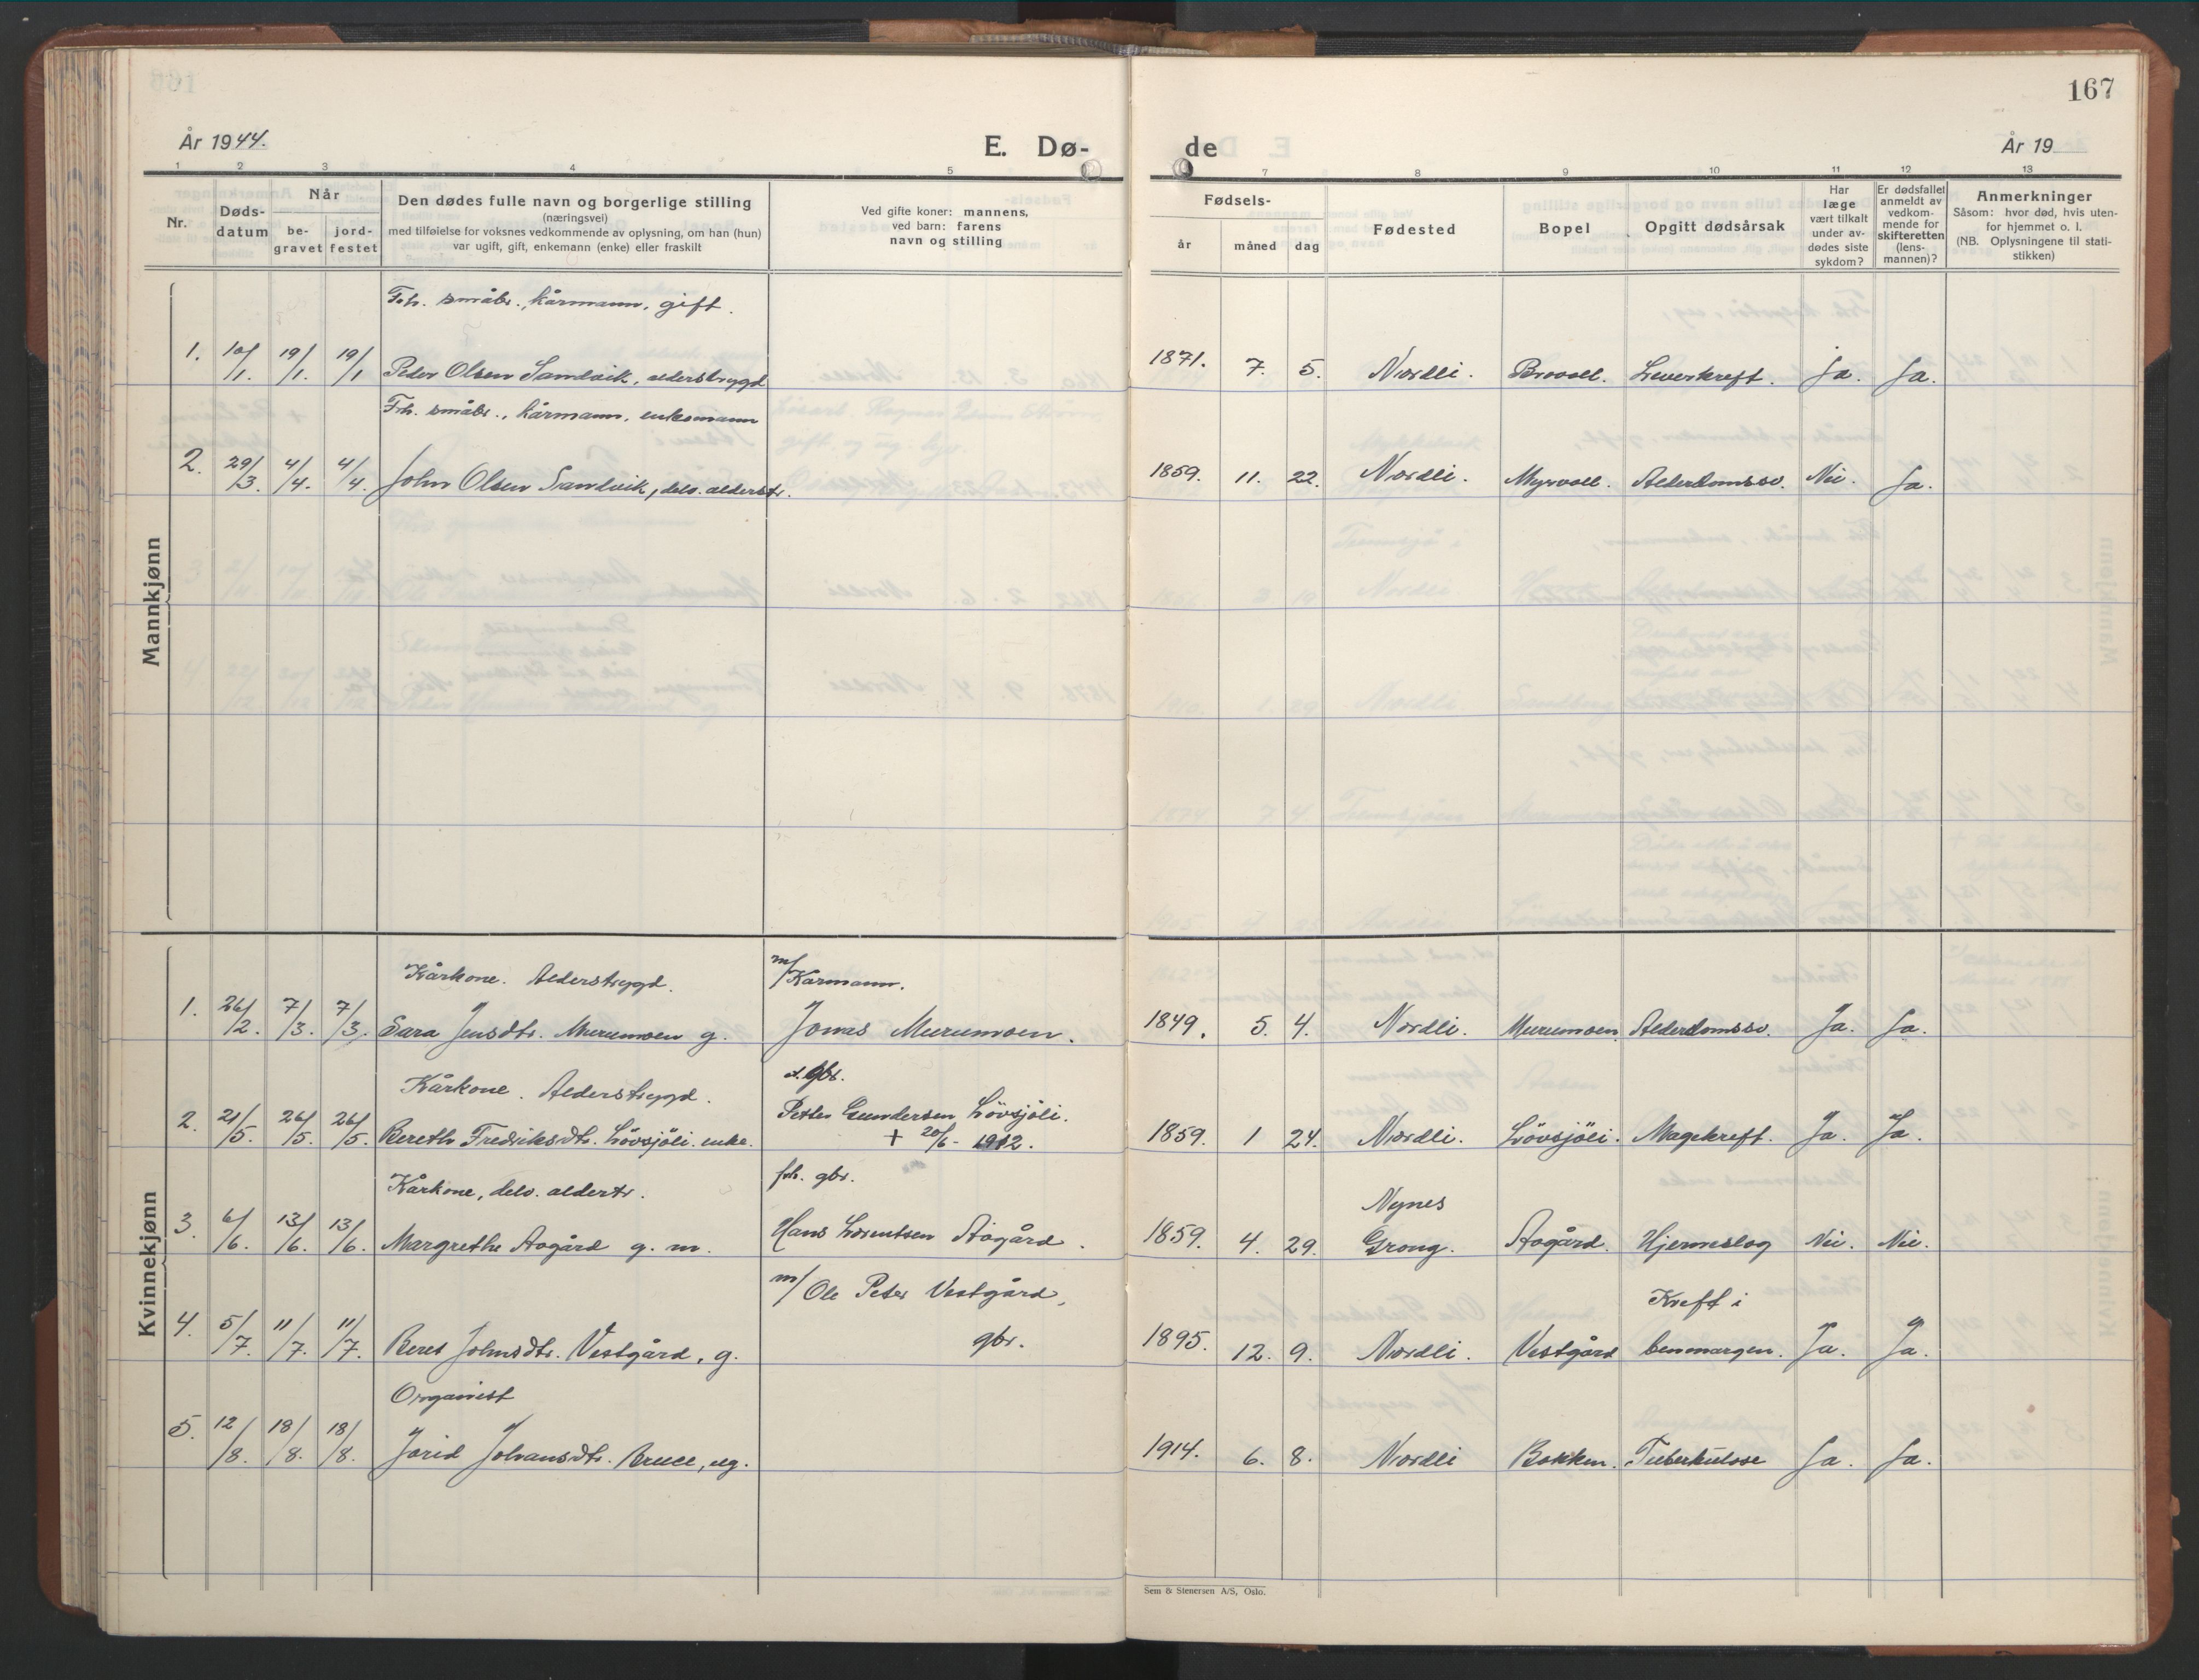 167
År 1944.
E. Dø-
de
År 19
1 2 3 4 5
7 8 9 10 11 12 13
Nr.
Døds-
datum
Når
be-
gravet
jord-
festet
Den dødes fulle navn og borgerlige stilling
(næringsvei)
med tilføielse for voksnes vedkommende av oplysning, om han (hun)
var ugift, gift, enkemann (enke) eller fraskilt
Ved gifte koner: mannens,
ved barn: farens
navn og stilling
Fødsels-
år
måned
dag
Fødested
Bopel
Opgitt dødsårsak
Har
læge
vært tilkalt
under av-
dødes siste
sykdom?
Er dødsfallet
anmeldt av
vedkom-
mende for
skifteretten
(lens-
mannen)?
Anmerkninger
Såsom: hvor død, hvis uten-
for hjemmet o. l.
(NB. Oplysningene til stati-
stikken)
Mannkjønn
Frh. småbr., kårmann, gift.
1. 10/1. 19/1. 19/1 Peder Olsen Sandvik, alderstrygd 1871. 7. 5. Nordli. Brovoll. Leverkreft. Ja. Ja.
Frh. småbr., kårmann, enkemann
2. 29/3. 4/4. 4/4. John Olsen Sandvik, delv. alderstr. 1859. 11. 22. Nordli. Myrvoll. Alderdomssv. Nei. Ja.
Kvinnekjønn
Kårkone. Alderstrygd. m/ Kårmann.
1. 26/2. 7/3. 7/3. Sara Jensdtr. Murumoen g. Jonas Murumoen. 1849. 5. 4. Nordli. Murumoen. Alderdomssv. Ja. Ja.
Kårkone. Alderstrygd. gbr.
2. 21/5. 26/5. 26/5. Bereth Fredriksdtr. Lövsjöli. enke. Petter Gundersen Lövsjöli. 1859. 1 24. Nordli. Lövsjöli. Magekreft. Ja. Ja.
+ 20/6 - 1912.
Kårkone, delv. aldertr. frh. gbr. Nynes
3. 6/6. 13/6. 13/6. Margrethe Aogård g. m. Hans Lorentsen Aogård. 1859. 4. 29. Grong. Aogård. Hjerneslag Nei. Nei.
m/ Ole Peter Vestgård, Kreft i
4. 5/7. 11/7. 11/7. Beret Johnsdtr. Vestgård, g. gbr. 1895. 12. 9. Nordli. Vestgård benmargen. Ja. Ja.
Organist
5. 12/8. 18/8. 18/8. Jorid Johansdtr. Bruce, ug. 1914. 6. 8. Nordli Bakken. Tuberkulose Ja. Ja.
Sem & Stenersen A/S, Oslo.